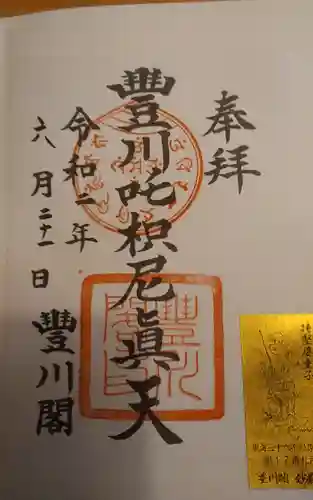 奉拝
豐川吒枳尼眞天
令和二年
六月二十一日
豐川閣